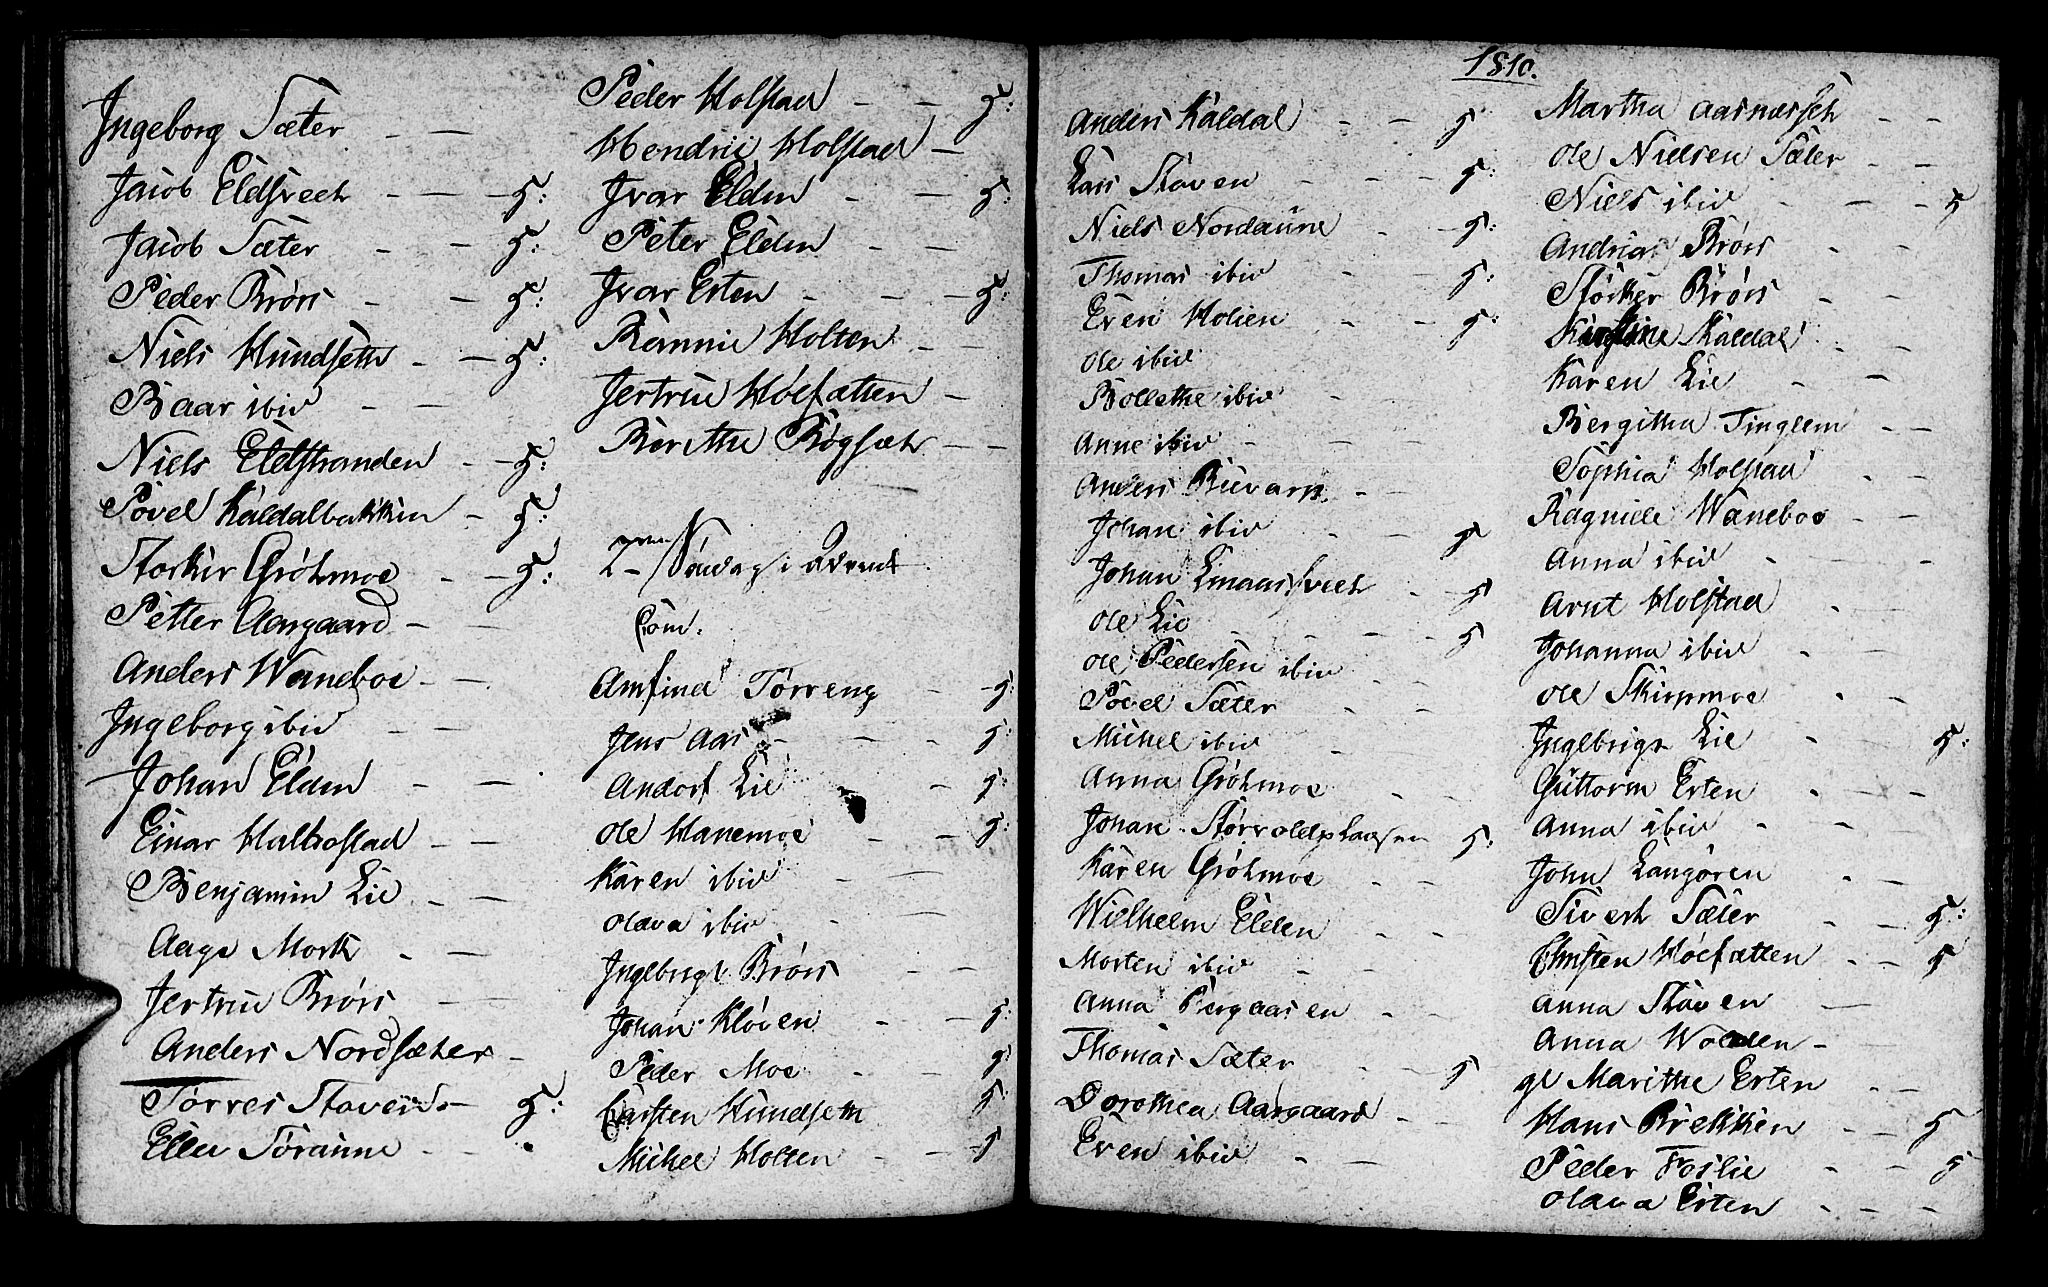 Ingeborg Sæter - -
Jacob Eldsvech - - g:
Jacob Sæter - - g:
Peder Brørs - - g:
Niels Hundseth - - g:
Baar ibid - -
Niels Eldstranden - - g:
Povel Kaldalbakken - g:
Storker Gröhmoe - - g:
Petter Aargaard - -
Anders Waneboe - -
Ingeborg ibid - -
Johan Elden - -
Einar Halbostad - -
Benjamin Lie - -
Aage Mork - -
Jertrud Brörs - -
Anders Nordsæter -
Torres Staven - g:
Ellen Söraune - -
Peder Holstad - - g:
Hendric Holstad -
Ivar Elden - - g:
Peter Elden - -
Ivar Erten - - - g:
Rannie Holten - -
Jertrud Hoefatten -
Berethe Rögsæter - -
2den Söndag i Advent
Com.
Amfind Törreng - - g:
Jens Aas - - - g:
Andorf Lie - g:
Ole Hanemoe - - g:
Karen ibid - -
Olava ibid - -
Ingebrigt Brörs - -
Johan Klöven - - g:
Peder Moe - - g:
Carsten Hundseth g:
Michel Holten - - - g
1810.
Anders Kaldal - - g
Lars Staven - - - g:
Niels Nordaune - - g:
Thomas ibid - - g:
Even Holien - - g:
Ole ibid - - g
Bollethe ibid -
Anne ibid - -
Anders Buvarp - -
Johan ibid - - g
Johan Linaassvech - g
Ole Lie - - - g
Ole Pedersen ibid - -
Povel Sæter - -
Michel ibid - -
Anna Gröhmoe - -
Johan Störvoldpladsen g:
Karen Gröhmoe - -
Wilhelm Elden - -
Morten ibid - -
Anna Bergaasen - -
Thomas Sæter - - g
Dorothea Aargaard -
Even ibid - -
Martha Aasnæsset - -
Ole Nielsen Sæter - -
Niels ibid - - - g
Andrias Brörs - -
Störker Brörs - -
Kirstine Kaldal - -
Karen Lie - -
Bergitha Tinglem - -
Sophia Holstad - -
Ragnilde Waneboe - -
Anna ibid - - -
Arnt Holstad - -
Johanna ibid - -
Ole Skirpmoe - -
Ingebrigt Lie - g:
Guttorm Erten - - -
Anna ibid - -
John Langören - -
Sivert Sæter - - g:
Christen Hoefatten - - g
Anna Staven -
Anna Wolden -
gl Marithe Erten - -
Hans Brekken - - g
Peder Foslie - - g
Olava Erten - - -